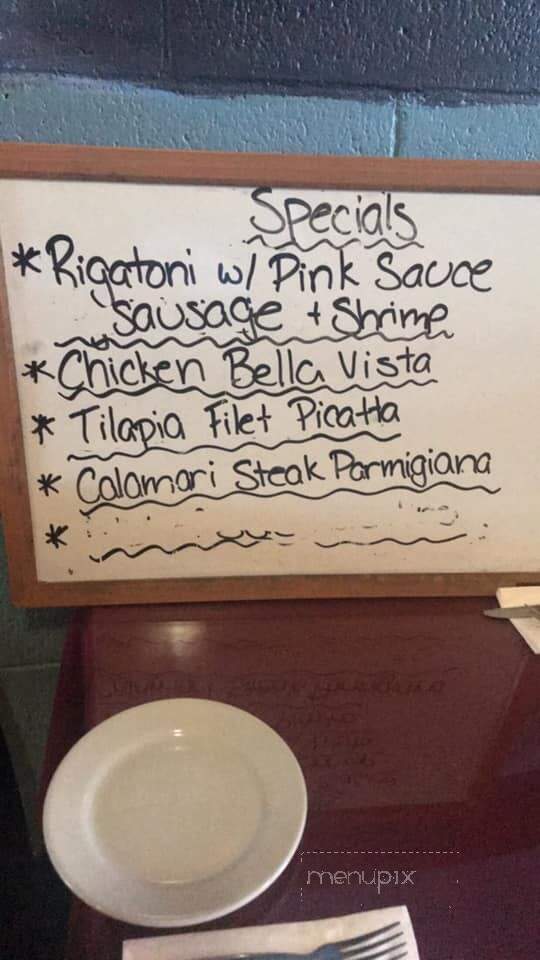 Specials
* Rigatoni w/ Pink Sauce
sausage + Shrimp
* Chicken Bella Vista
* Tilapia Filet Picatta
* Calamari Steak Parmigiana
*
menupix